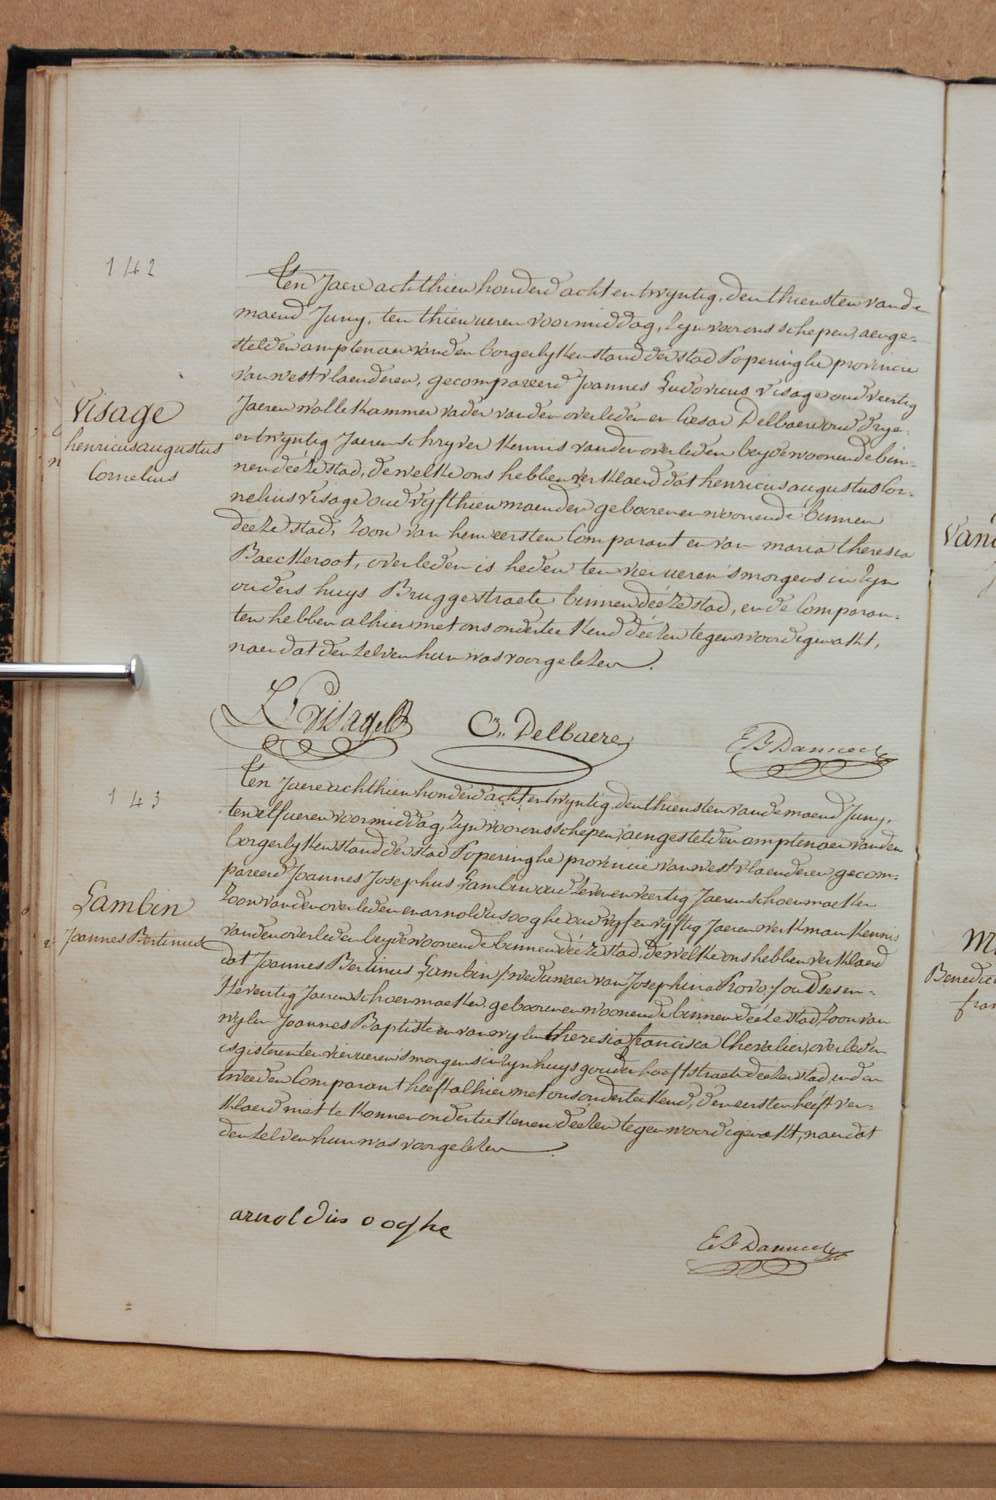 142
Ten Jaere achthien honderd acht en twyntig, den thiensten van de
maend Juny, ten thien ueren voormiddag, Zyn voor ons schepen, aenge-
stelden amptenaer van den borgerlyken stand der stad Poperinghe provincie
van westvlaenderen, gecompareerd Joannes Ludovicus Visage oud veertig
Visage
henricus augustus
Cornelius
Jaeren wollekammer vader van den overleden en Cesar Delbaere oud drye
en twyntig Jaeren schryver kennis van den overleden beyde woonende bin-
nen deéze stad, de welke ons hebben verklaerd dat henricus augustus Cor-
nelius Visage oud vyfthien maenden geboren en woonende binnen
deéze stad, Zoon van hem eersten Comparant en van maria theresia
Baeckeroot, overleden is heden ten vier ueren 's morgens in Zyn
ouders huys Bruggestraete binnen deéze stad, en de Comparan-
ten hebben alhier met ons onderteekend deézen tegenwoordigen akt,
naer dat den zelven hun was voorgelezen.
L Visage
C. Delbaere
143
Ten Jaere achthien honderd acht en twyntig, den thiensten van de maend Juny,
ten elf ueren voormiddag, Zyn voor ons schepen, aengestelden amptenaer van den
borgerlyken stand der stad Poperinghe provincie van westvlaenderen, gecom-
pareerd Joannes Josephus Lambin oud zeven en veertig Jaeren schoenmaeker
Lambin
Joannes Bertinus
Zoon van den overleden en arnoldus ooghe oud vyf en vyftig Jaeren werkman kennis
van den overleden beyde woonende binnen deéze stad, de welke ons hebben verklaerd
dat Joannes Bertinus Lambin weduwaer van Josephina oud ses en-
tseventig Jaeren schoenmaeker geboren en woonende binnen deéze stad, Zoon van
wylen Joannes Baptiste en van wylen theresia francisca Chevalier, overleden
is gisteren ten vier ueren 's morgens in Zyn huys gouden hoofdstraete deézer stad, en den
tweeden Comparant heeft alhier met ons onderteekend, den eersten heéft ver-
klaerd niet te konnen onderteekenen deézen tegenwoordigen akt, naer dat
den zelven hun was voorgelezen.
arnoldus ooghe